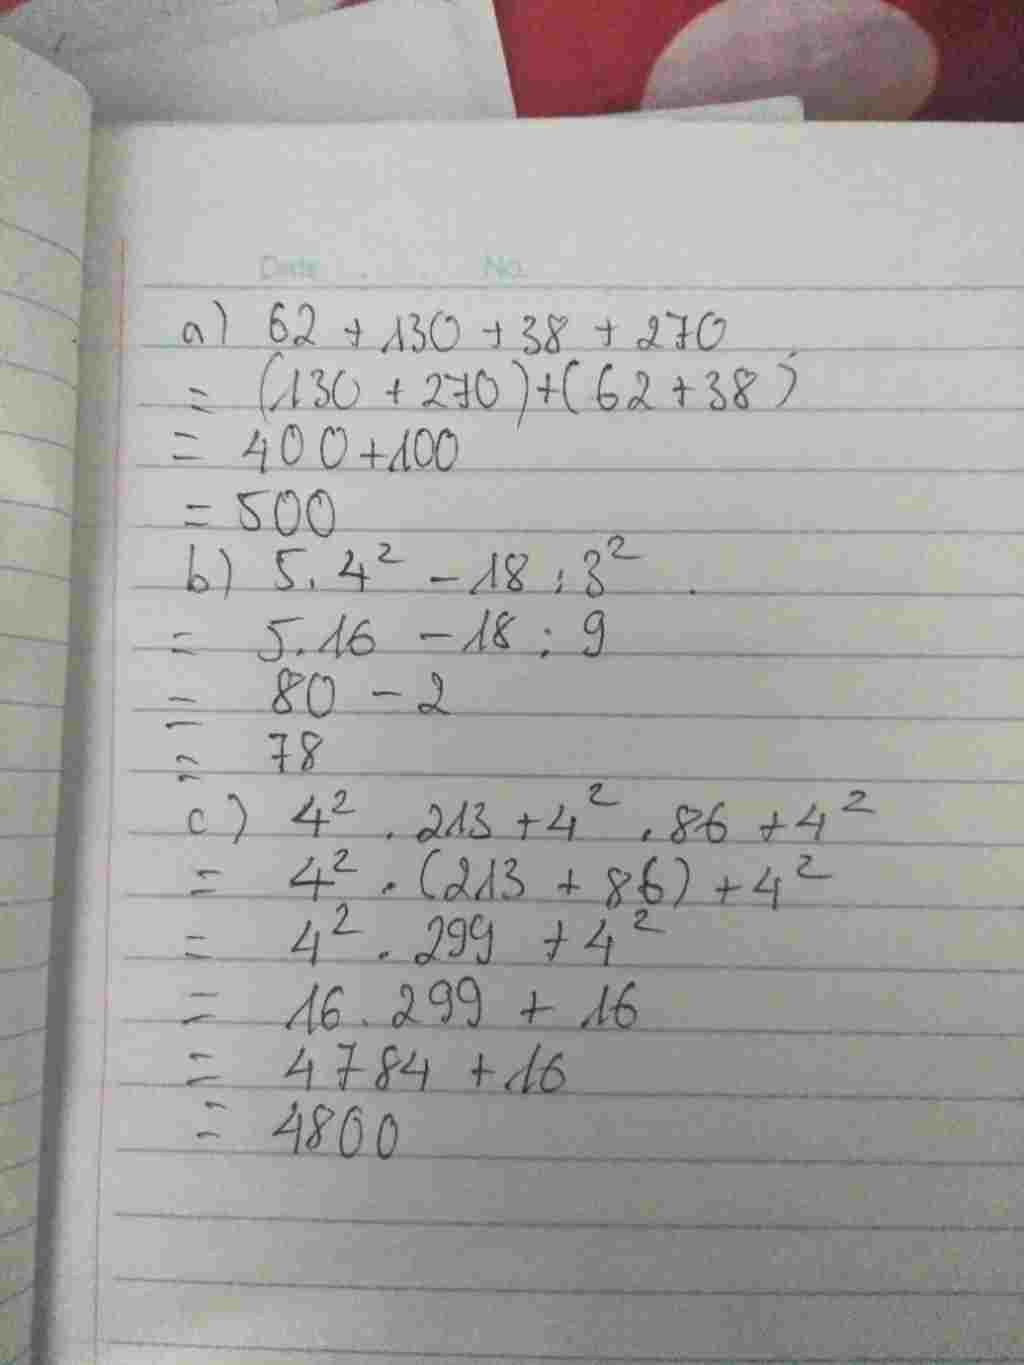 Date No.
a) 62 + 130 + 38 + 270
= (130 + 270) + (62 + 38)
= 400 + 100
= 500
b) 5.4² - 18 : 3²
= 5.16 - 18 : 9
= 80 - 2
= 78
c) 4² . 213 + 4² . 86 + 4²
= 4² . (213 + 86) + 4²
= 4² . 299 + 4²
= 16 . 299 + 16
= 4784 + 16
= 4800